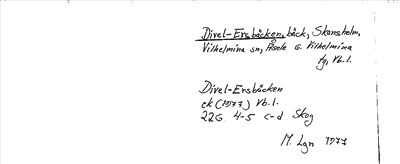 Divel-Ersbäcken, bäck, Skansholm,
Vilhelmina sn, Åsele o. Vilhelmina
tg, Vb. l.
Divel-Ersbäcken
ek (1977) Vb. l.
22G. 4-5 c-d Skog
M. Lgn 1977